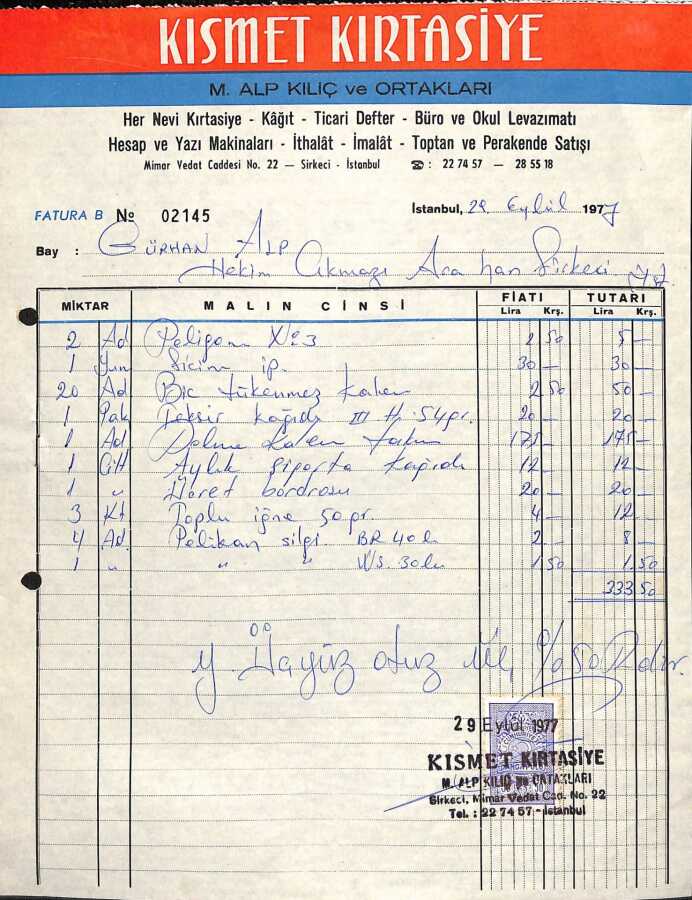 KISMET KIRTASİYE
M. ALP KILIÇ ve ORTAKLARI
Her Nevi Kırtasiye - Kâğıt - Ticari Defter - Büro ve Okul Levazımatı
Hesap ve Yazı Makinaları - İthalât - İmalât - Toptan ve Perakende Satışı
Mimar Vedat Caddesi No. 22 — Sirkeci - İstanbul ☎ : 22 74 57 — 28 55 18
FATURA B № 02145
İstanbul, 29 Eylül 1977
Bay : GÜRHAN ALP
Hekim Çıkmazı Ara han Sirkeci
MİKTAR MALIN CİNSİ FİATI TUTARI
Lira Krş. Lira Krş.
2 Ad Peligom No 3 2 50 5 —
1 Yum Sicim ip. 30 — 30 —
20 Ad Bic tükenmez kalem 2 50 50 —
1 Pak Teksir kağıdı III H. 54 gr. 20 — 20 —
1 Ad Dolma kalem takım 175 — 175 —
1 Cilt Aylık sigorta kağıdı 12 — 12 —
1 " Ücret bordrosu 20 — 20 —
3 Kt Toplu iğne 50 gr. 4 — 12 —
4 Ad. Pelikan silgi BR 40 lı 2 — 8 —
1 " " " WS. 30 lu 1 50 1.50
333 50
y. Üçyüz otuz üç, %50 Kdır.
29 Eylül 1977
KISMET KIRTASİYE
M. ALP KILIÇ ve ORTAKLARI
Sirkeci, Mimar Vedat Cad. No. 22
Tel. : 22 74 57 - İstanbul